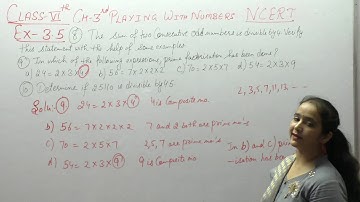 CLASS-VIth CH-3rd PLAYING WITH NUMBERS NCERT
Ex-3.5 (8) The sum of two consecutive odd numbers is divisible by 4. Verify
this statement with the help of some examples
9) In which of the following expressions, prime factorisation has been done?
a) 24 = 2×3×4 b) 56 = 7×2×2×2 c) 70 = 2×5×7 d) 54 = 2×3×9
10) Determine if 25110 is divisible by 45
Soln: (9) 24 = 2×3×4 4 is composite no. 2,3,5,7,11,13, - -
b) 56 = 7×2×2×2 7 and 2 both are prime no's
c) 70 = 2×5×7 2,5,7 are prime no's In b) and c) prime
d) 54 = 2×3×9 9 is Composite no -isation has been